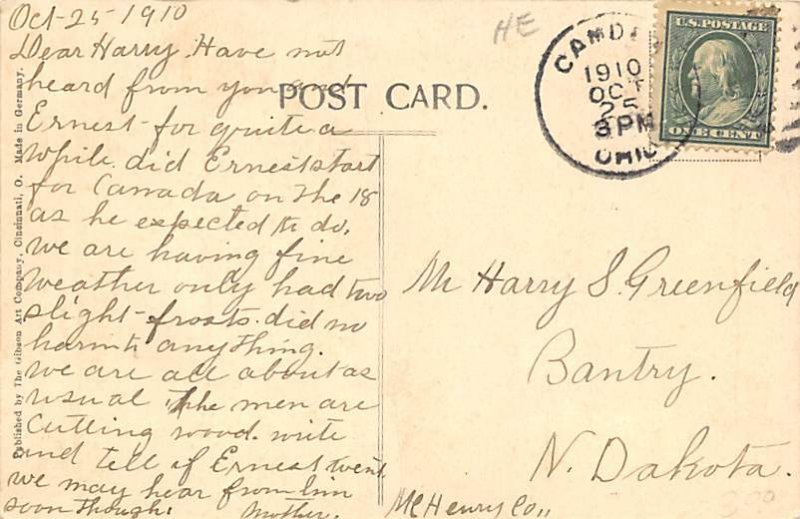 Oct-25-1910
Dear Harry. Have not
heard from you and
Ernest-for quite a
while. did Ernest start
for Canada on the 18
as he expected to do.
we are having fine
weather only had two
slight-frosts. did no
harm to anything.
we are all about as
usual the men are
cutting wood. write
and tell if Ernest went
we may hear from him
soon though. Mother.
POST CARD.
HE
CAMD
1910
OCT
25
3 PM
OHIO
U.S. POSTAGE
ONE CENT
Mr Harry S. Greenfield
Bantry.
N. Dakota.
McHenry Co,,
Published by The Gibson Art Company, Cincinnati, O. Made in Germany.